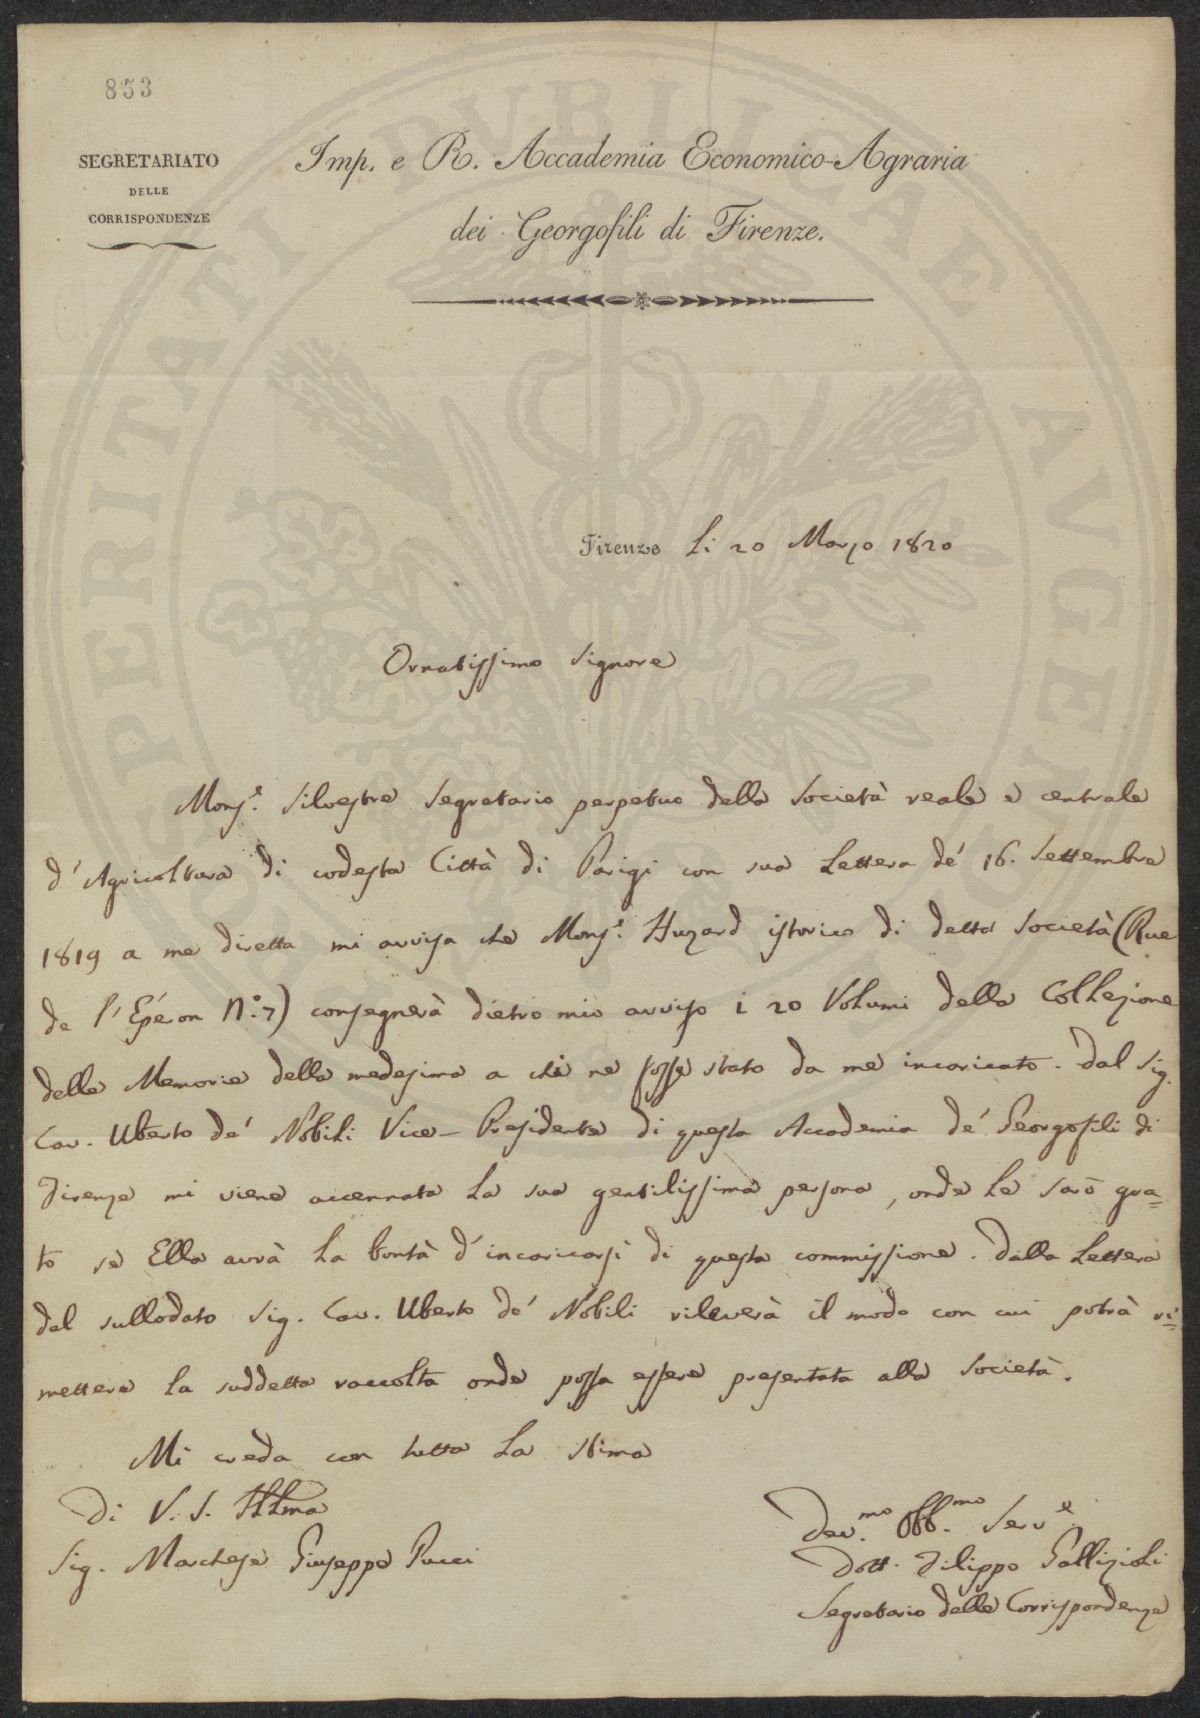 853
SEGRETARIATO
DELLE
CORRISPONDENZE
Imp. e R. Accademia Economico-Agraria
dei Georgofili di Firenze.
PROSPERITATI PVBLICAE AVGENDAE
Firenze Li 20 Marzo 1820
Ornatissimo Signore
Mons.r Silvestre Segretario perpetuo della Società reale e centrale
d'Agricoltura di codesta Città di Parigi con sua Lettera de' 16. Settembre
1819 a me diretta mi avvisa che Mons.r Huzard istorico di detta Società (Rue
de l'Epéeon N.o 7) consegnerà dietro mio avviso i 20 Volumi della Collezione
delle Memorie della medesima a chi ne fosse stato da me incaricato. Dal Sig.
Cav. Uberto de' Nobili Vice-Presidente di questa Accademia de' Georgofili di
Firenze mi viene accennata la sua gentilissima persona, onde le sarò gra=
to se Ella avrà la bontà d'incaricarsi di questa commissione. Dalla Lettera
del sullodato Sig. Cav. Uberto de' Nobili rileverà il modo con cui potrà ri=
mettere la suddetta raccolta onde possa essere presentata alla Società.
Mi creda con tutta la stima
Di V. S. Illma
Sig. Marchese Giuseppe Pucci
Dev.mo Obb.mo Serv.e
Dott. Filippo Gallizioli
Segretario delle Corrispondenze